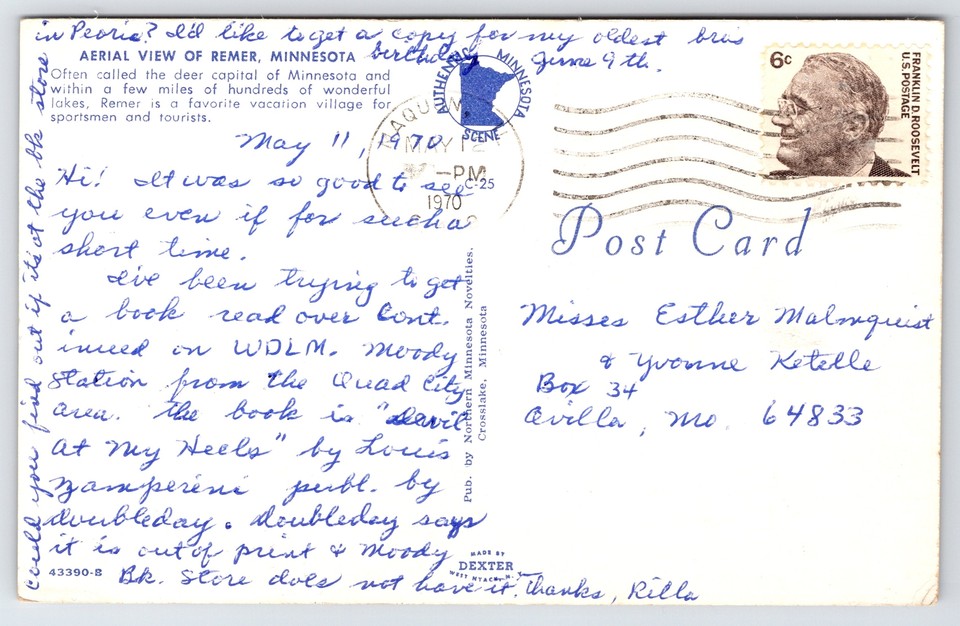 in Peoria? I'd like to get a copy for my oldest bro's
birthday June 9th.
AERIAL VIEW OF REMER, MINNESOTA
Often called the deer capital of Minnesota and
within a few miles of hundreds of wonderful
lakes, Remer is a favorite vacation village for
sportsmen and tourists.
AUTHENTIC MINNESOTA
SCENE
C-25
MAY 12
-PM
1970
6c
FRANKLIN D. ROOSEVELT
U.S. POSTAGE
May 11, 1970
Hi! It was so good to see
you even if for such a
short time.
I've been trying to get
a book read over Cont.
inued on WDLM. Moody
Station from the Quad City
area. The book is "Devil
At My Heels" by Louis
Zamperini publ. by
Doubleday. Doubleday says
it is out of print & Moody
Bk. Store does not have it. Thanks, Rilla
could you find out if it's at the bk store
43390-B
Pub. by Northern Minnesota Novelties.
Crosslake, Minnesota
MADE BY
DEXTER
WEST NYACK, N.Y.
Post Card
Misses Esther Malmquist
& Yvonne Ketelle
Box 34
Avilla, Mo. 64833